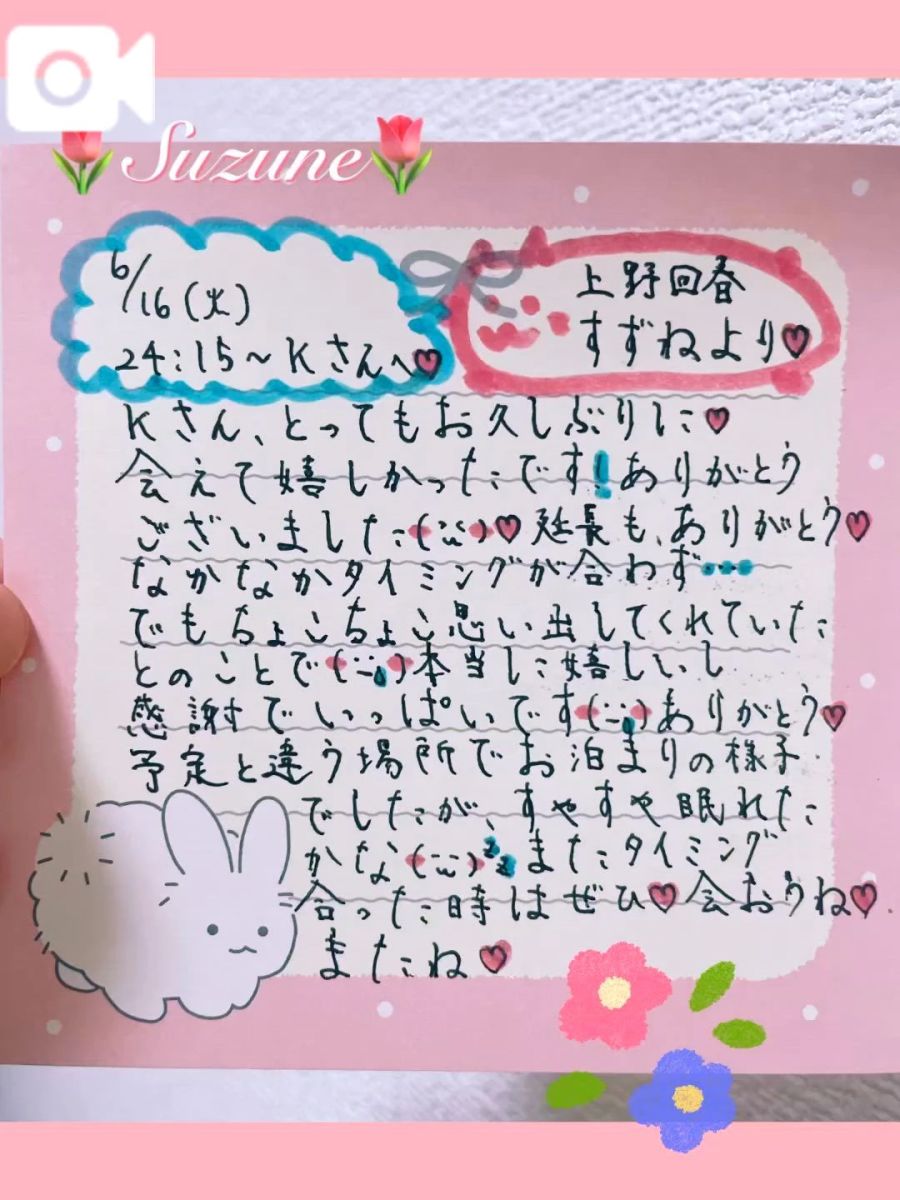 Suzune
6/16(火)
24:15〜Kさんへ♥
上野回春
すずねより♥
Kさん、とってもお久しぶりに♥
会えて嬉しかったです!ありがとう
ございました(¨̮)♥延長も、ありがとう♥
なかなかタイミングが合わず…
でもちょこちょこ思い出してくれていた
とのことで(¨̮)本当に嬉しいし
感謝でいっぱいです(¨̮)ありがとう♥
予定と違う場所でお泊まりの様子
でしたが、すやすや眠れた
かな(¨̮)ᶻᶻまたタイミング
合った時はぜひ♥会おうね♥
またね♥